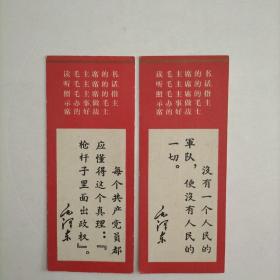 读毛主席的书
听毛主席的话
照毛主席的指
示办事做毛主
席的好战士
每个共产党員都
应懂得这个真理：『
枪杆子里面出政权』。
毛泽东
读毛主席的书
听毛主席的话
照毛主席的指
示办事做毛主
席的好战士
沒有一个人民的
軍队，便沒有人民的
一切。
毛泽东